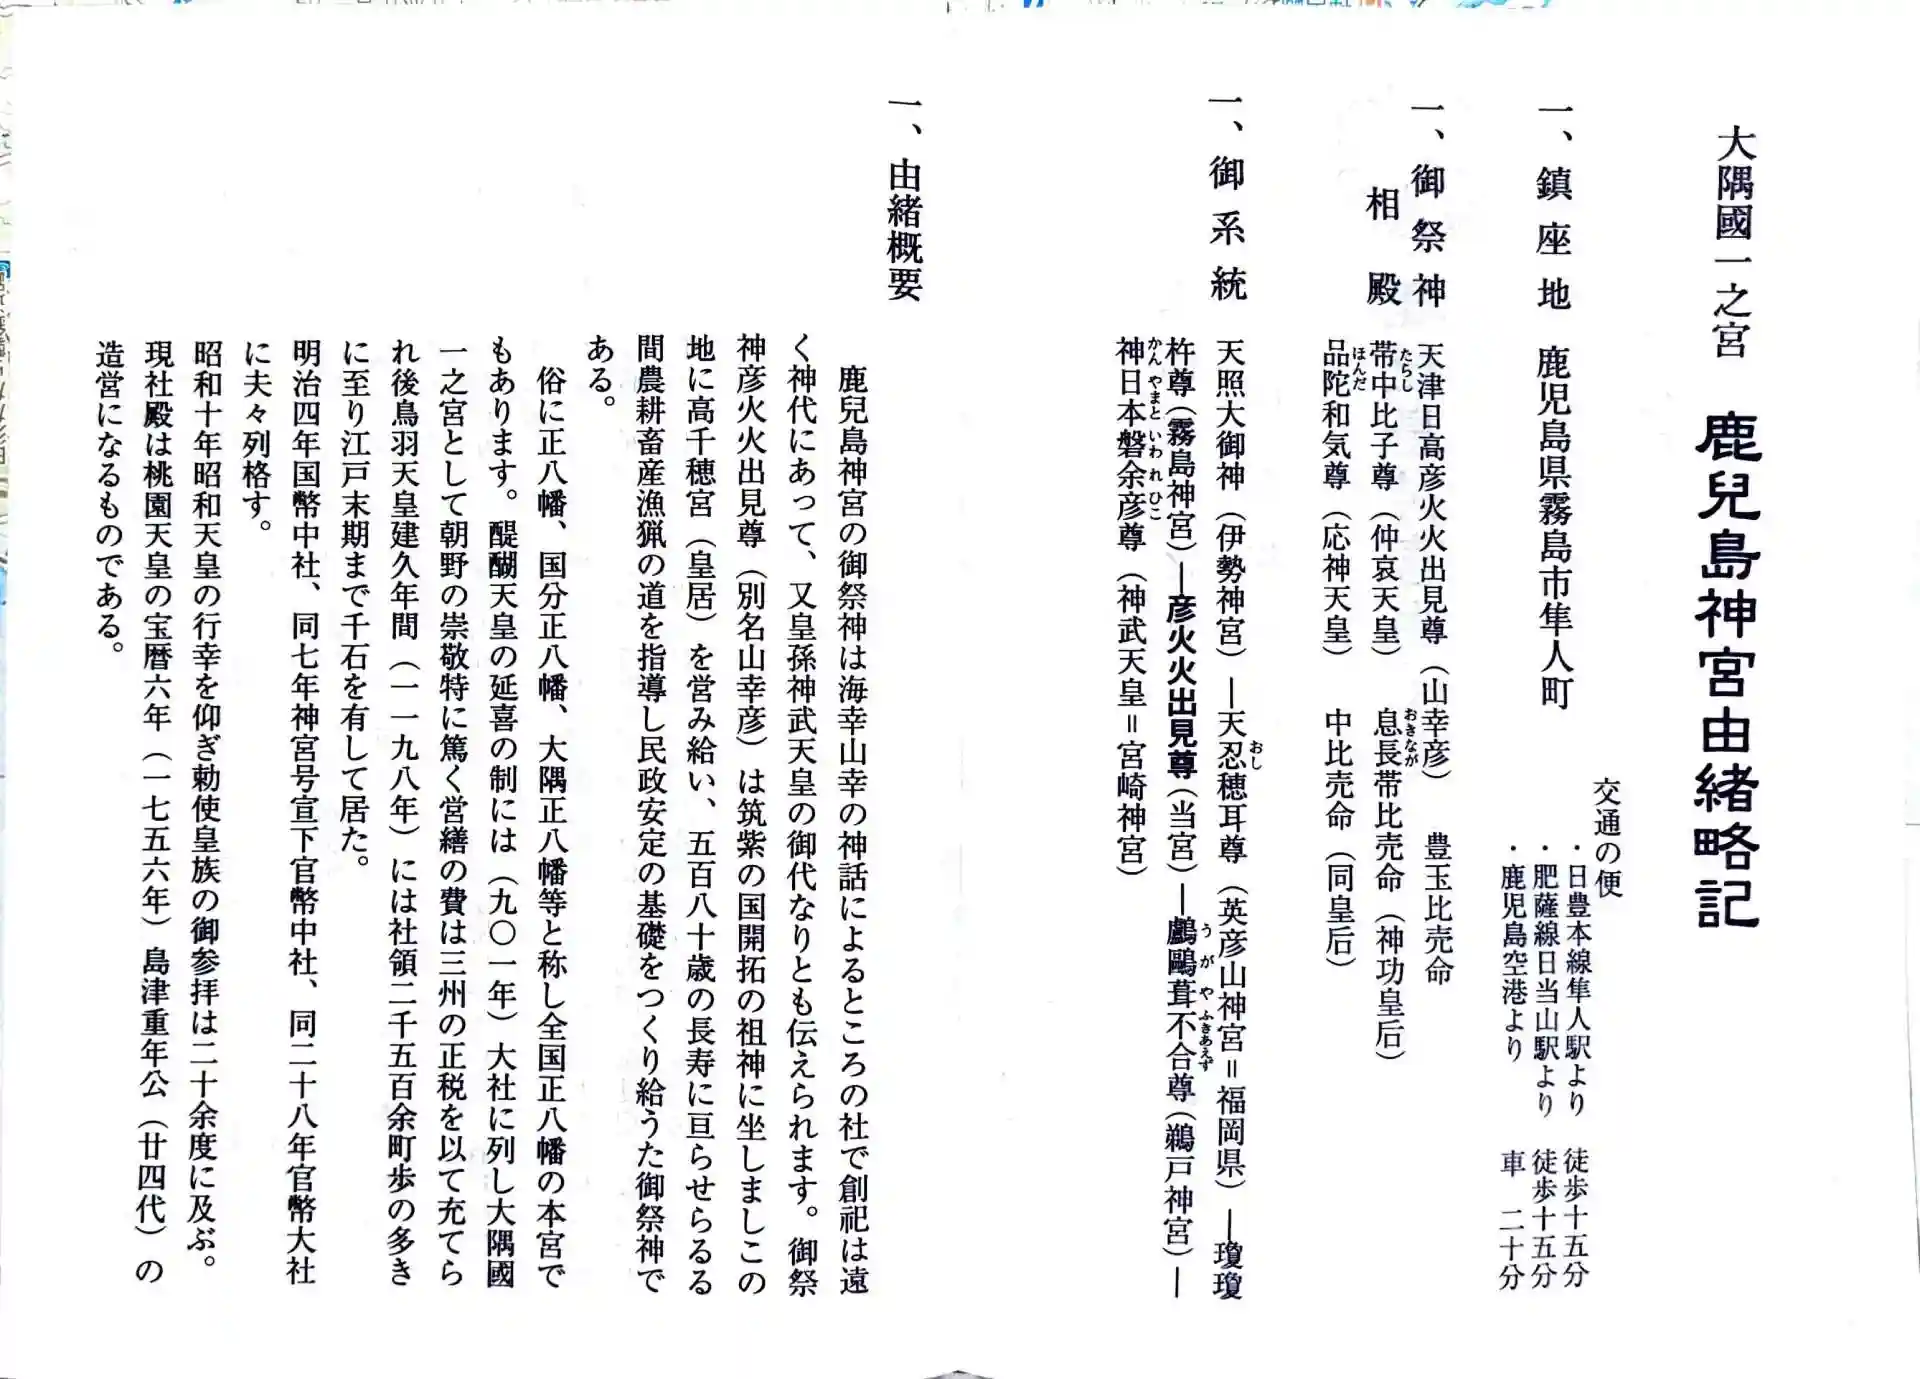 大隅國一之宮　鹿兒島神宮由緒略記
交通の便
・日豊本線隼人駅より　徒歩十五分
・肥薩線日当山駅より　徒歩十五分
・鹿児島空港より　車　二十分
一、鎮座地　鹿児島県霧島市隼人町
一、御祭神　天津日高彦火火出見尊（山幸彦）　豊玉比売命
相殿　帯中比子尊（仲哀天皇）　息長帯比売命（神功皇后）
たらし　おきなが
品陀和気尊（応神天皇）　中比売命（同皇后）
ほんだ
一、御系統　天照大御神（伊勢神宮）―天忍穂耳尊（英彦山神宮＝福岡県）―瓊瓊
おし
杵尊（霧島神宮）―彦火火出見尊（当宮）―鸕鷀葺不合尊（鵜戸神宮）―
うがやふきあえず
神日本磐余彦尊（神武天皇＝宮崎神宮）
かんやまといわれひこ
一、由緒概要
鹿兒島神宮の御祭神は海幸山幸の神話によるところの社で創祀は遠
く神代にあって、又皇孫神武天皇の御代なりとも伝えられます。御祭
神彦火火出見尊（別名山幸彦）は筑紫の国開拓の祖神に坐しましこの
地に高千穂宮（皇居）を営み給い、五百八十歳の長寿に亘らせらるる
間農耕畜産漁猟の道を指導し民政安定の基礎をつくり給うた御祭神で
ある。
俗に正八幡、国分正八幡、大隅正八幡等と称し全国正八幡の本宮で
もあります。醍醐天皇の延喜の制には（九〇一年）大社に列し大隅國
一之宮として朝野の崇敬特に篤く営繕の費は三州の正税を以て充てら
れ後鳥羽天皇建久年間（一一九八年）には社領二千五百余町歩の多き
に至り江戸末期まで千石を有して居た。
明治四年国幣中社、同七年神宮号宣下官幣中社、同二十八年官幣大社
に夫々列格す。
昭和十年昭和天皇の行幸を仰ぎ勅使皇族の御参拝は二十余度に及ぶ。
現社殿は桃園天皇の宝暦六年（一七五六年）島津重年公（廿四代）の
造営になるものである。